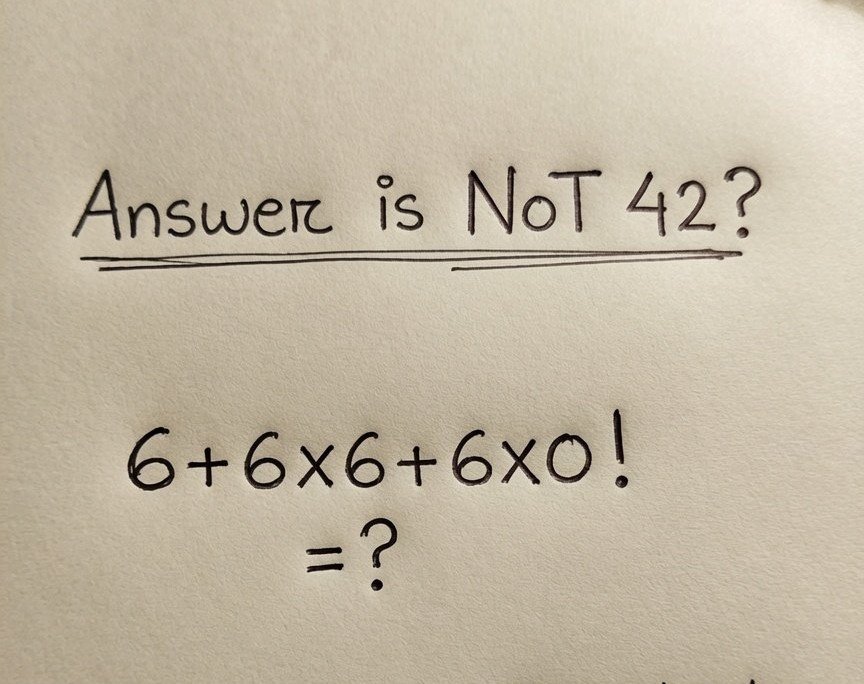 Answer is NoT 42?
6+6x6+6x0!
=?